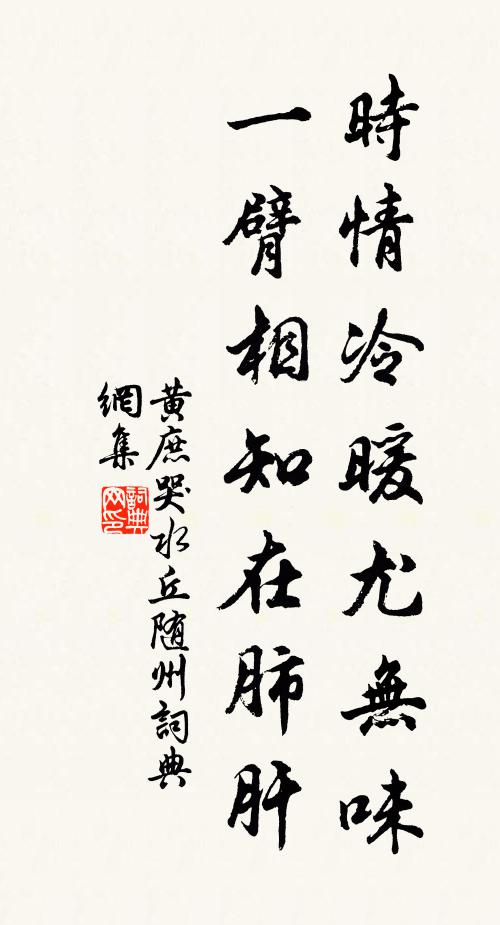 時情冷暖尤無味
一臂相知在肺肝
黃庶哭水丘随州詞典
網集
詞典
网印